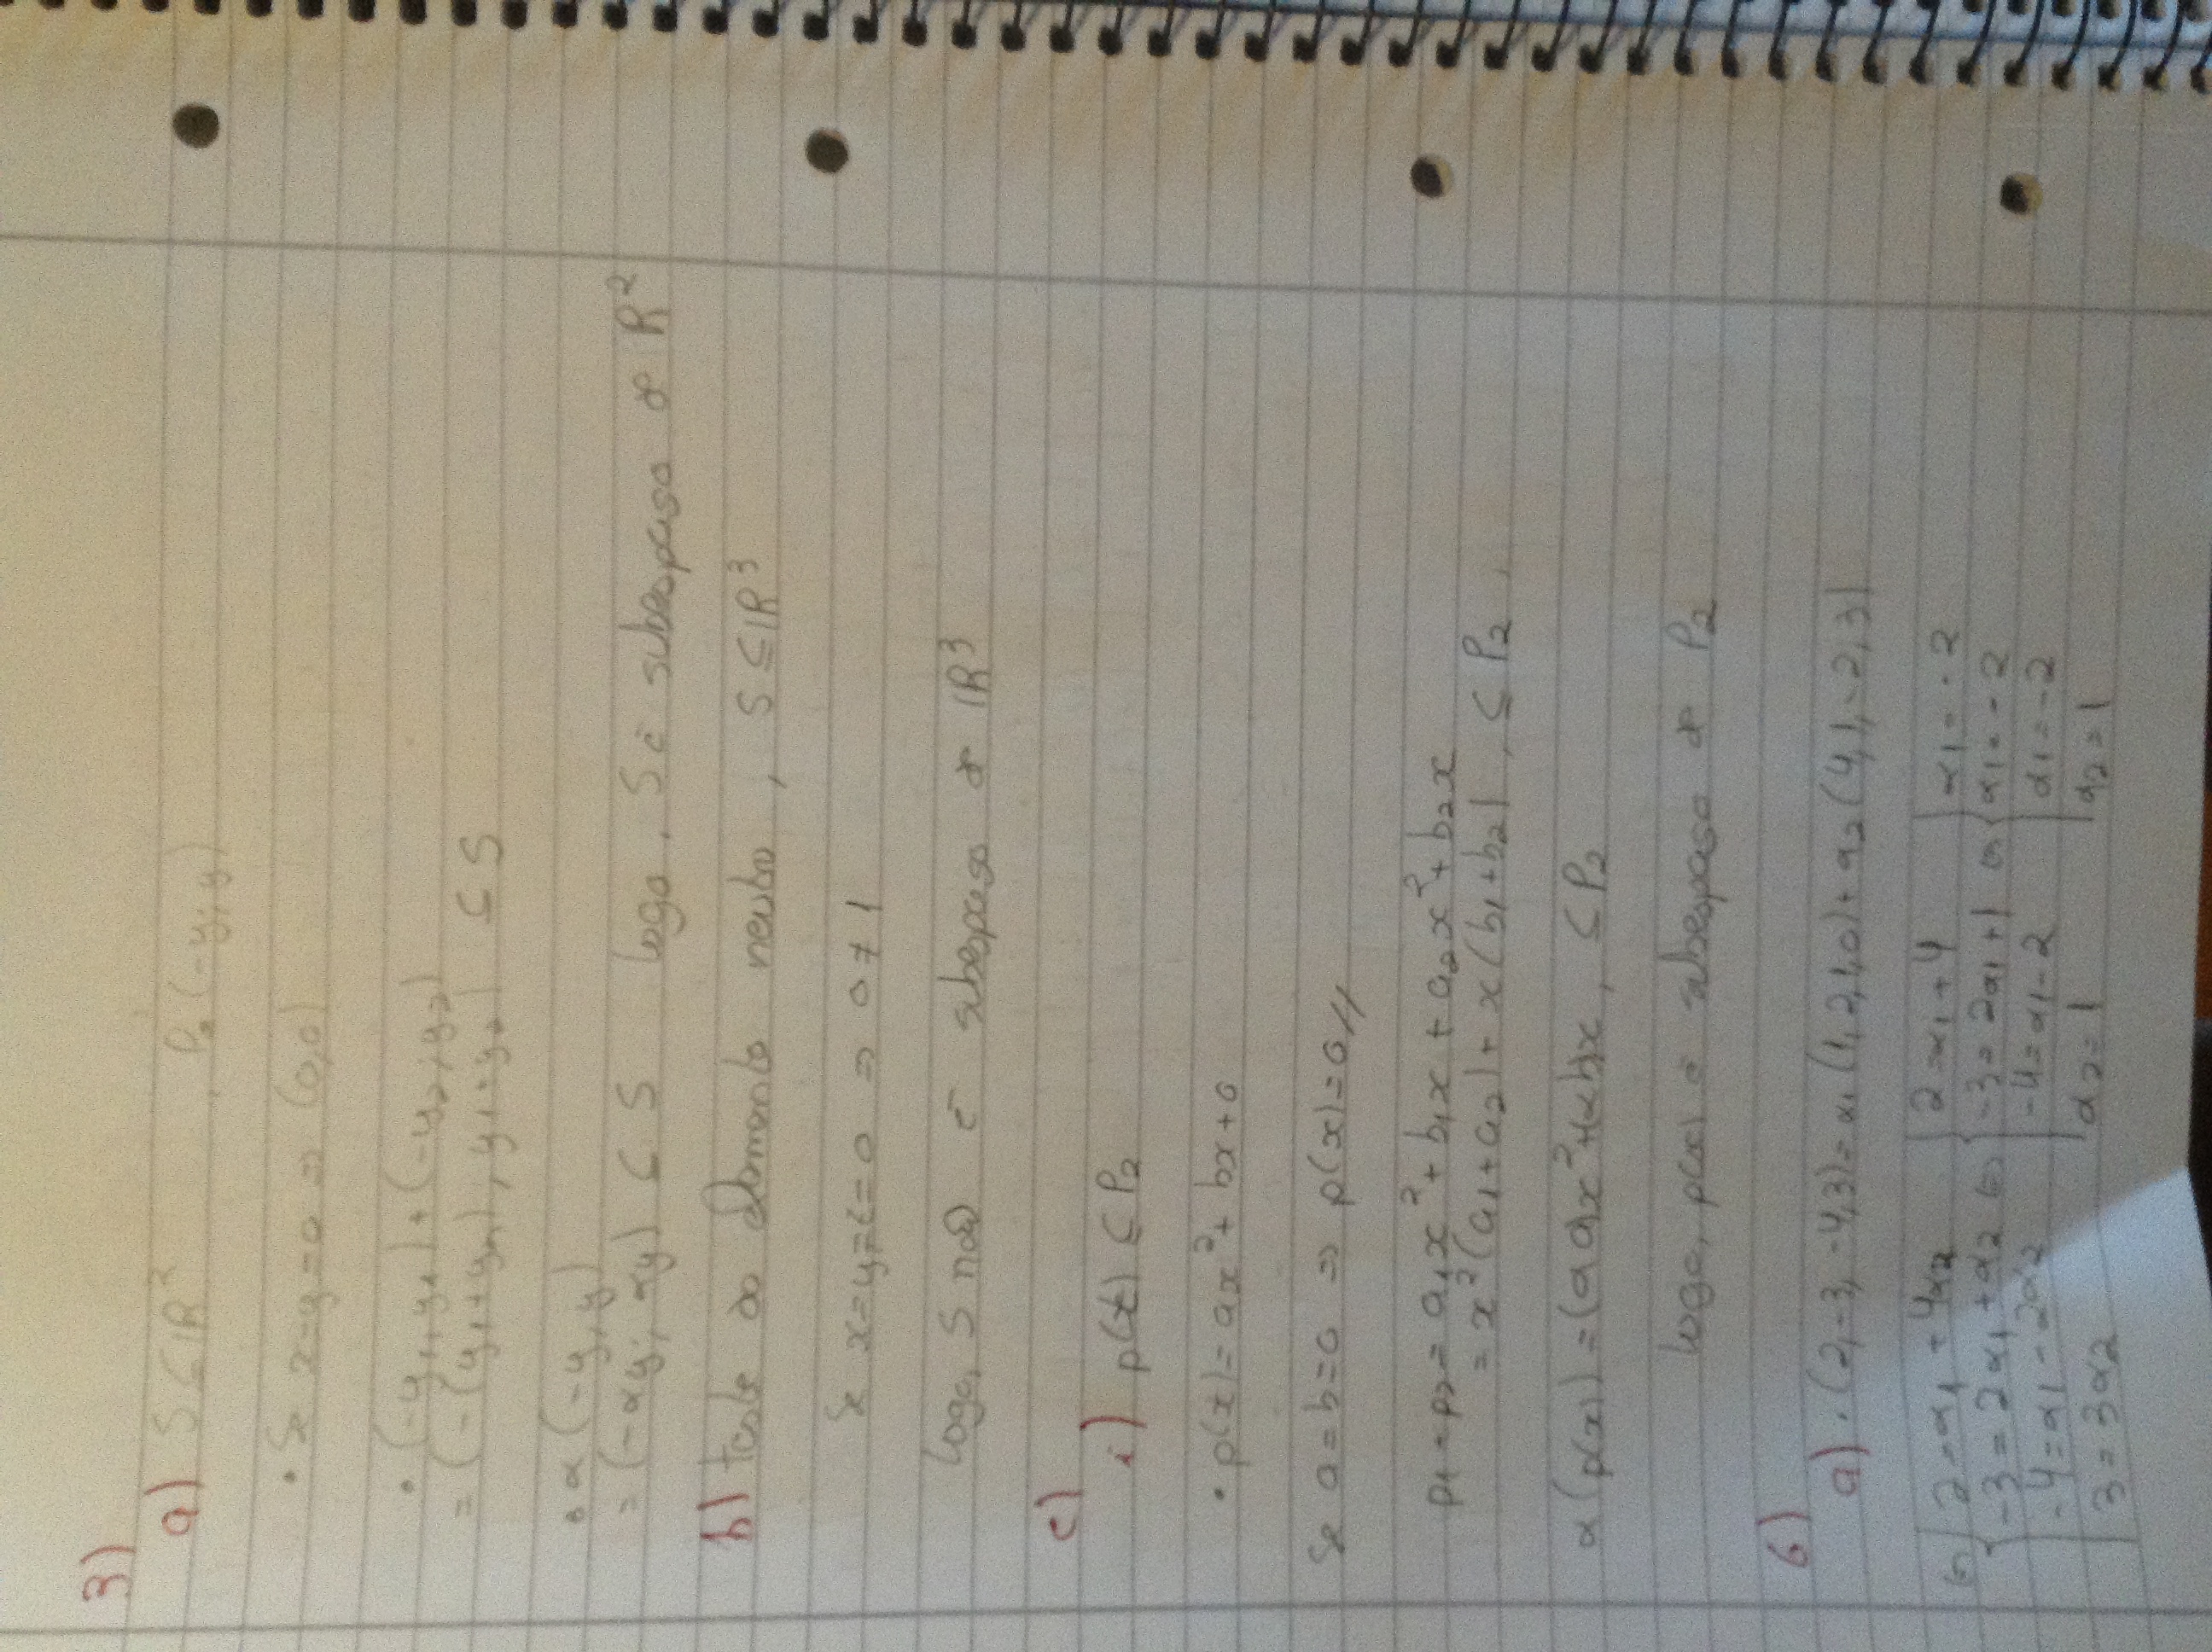 3)
a) S ⊆ IR² , P= (-y; y)
• Se x=y=0 ⇒ (0,0)
• (-y₁, y₁) + (-y₂; y₂)
= (-(y₁+y₂); y₁+y₂) ⊆ S
• α (-y, y)
= (-αy; αy) ⊆ S logo, S é subespaso de R²
b) teste do Elemento neutro, S ⊆ IR³
Se x=y=z=0 ⇒ 0≠1
logo, S não é subespaso de IR³
c)
i) p(t) ⊆ P₂
• p(t) = ax² + bx + 0
Se a=b=0 ⇒ p(x)=0//
p₁ + p₂ = a₁x² + b₁x + a₂x² + b₂x
= x²(a₁+a₂) + x(b₁+b₂), ⊆ P₂
α (p(x)) = (αa)x²+(αb)x, ⊆ P₂
logo, p(x) é subespaso de P₂
6)
a) • (2,-3,-4,3) = α₁ (1,2,1,0) + α₂ (4,1,-2,3)
⇔ 2=α₁+4α₂ 2=α₁+4 α₁=-2
-3=2α₁+α₂ ⇔ -3=2α₁+1 ⇔ α₁=-2
-4=α₁-2α₂ -4=α₁-2 α₁=-2
3=3α₂ α₂=1 α₂=1